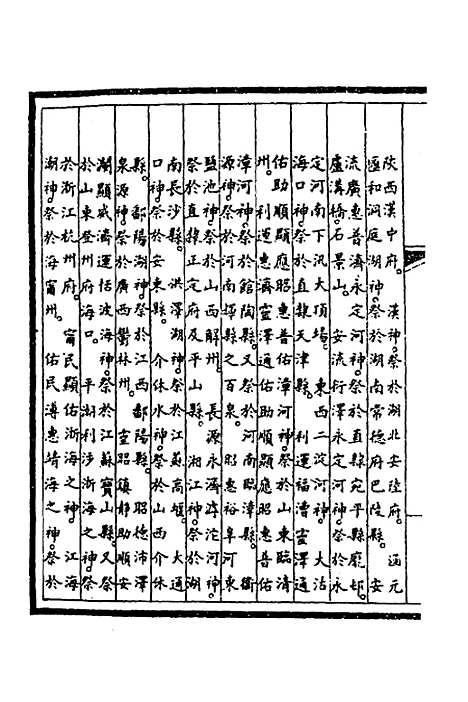 陝西漢中府。漢神。祭於湖北安陸府。涵元
區和洞庭湖神。祭於湖南常德府巴陵縣。安
流廣惠普濟永定河神。祭於直隸宛平縣龐村。
盧溝橋。石景山。安流衍澤永定河神。祭於永
定河南下汛大頂場。東西二淀河神。大沽
海口神。祭於直隸天津縣。利運福漕靈澤通
佑助順顯應昭惠普佑漳河神。祭於山東臨清
州。利運惠濟靈澤通佑助順顯應昭惠普佑
漳河神。祭於館陶縣。又祭於河南臨漳縣。衞
源神。祭於河南輝縣之百泉。昭惠裕阜河東
鹽池神。祭於山西解州。長源永濟滹沱河神。
祭於直隸正定府及平山縣。湘江神。祭於湖
南長沙縣。洪澤湖神。祭於江蘇高堰。大通
口神。祭於安東縣。介休水神。祭於山西介休
縣。鄱陽湖神。祭於江西鄱陽縣。昭德沛澤
泉源神。祭於廣西鬱林州。宣昭鎮靜助順安
瀾顯威濟運恬波海神。祭於江蘇寶山縣。又祭
於山東登州府海口。平潮利涉浙海之神。祭
於浙江杭州府。甯民顯佑浙海之神。江海
湖神。祭於海甯州。佑民溥惠靖海之神。祭於